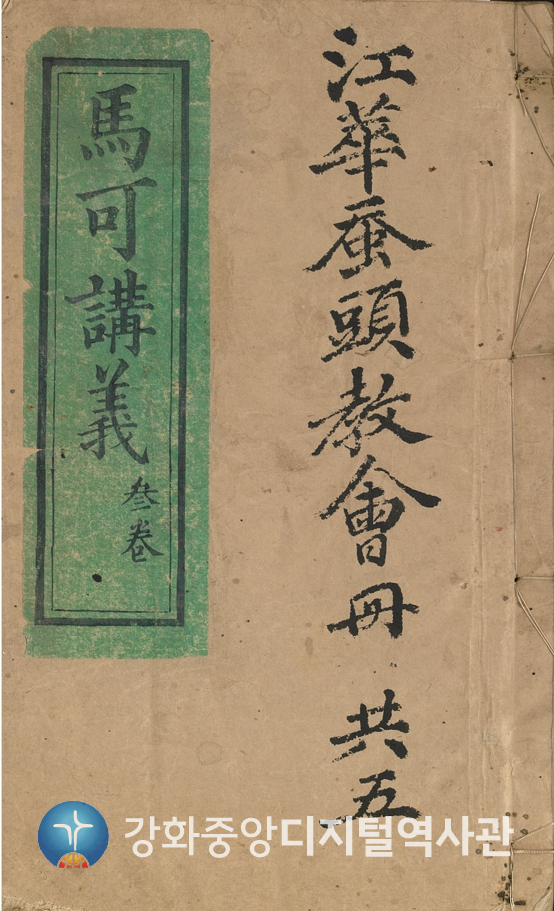 江華蚕頭教會冊 共五
馬可講義 叄卷
강화중앙디지털역사관